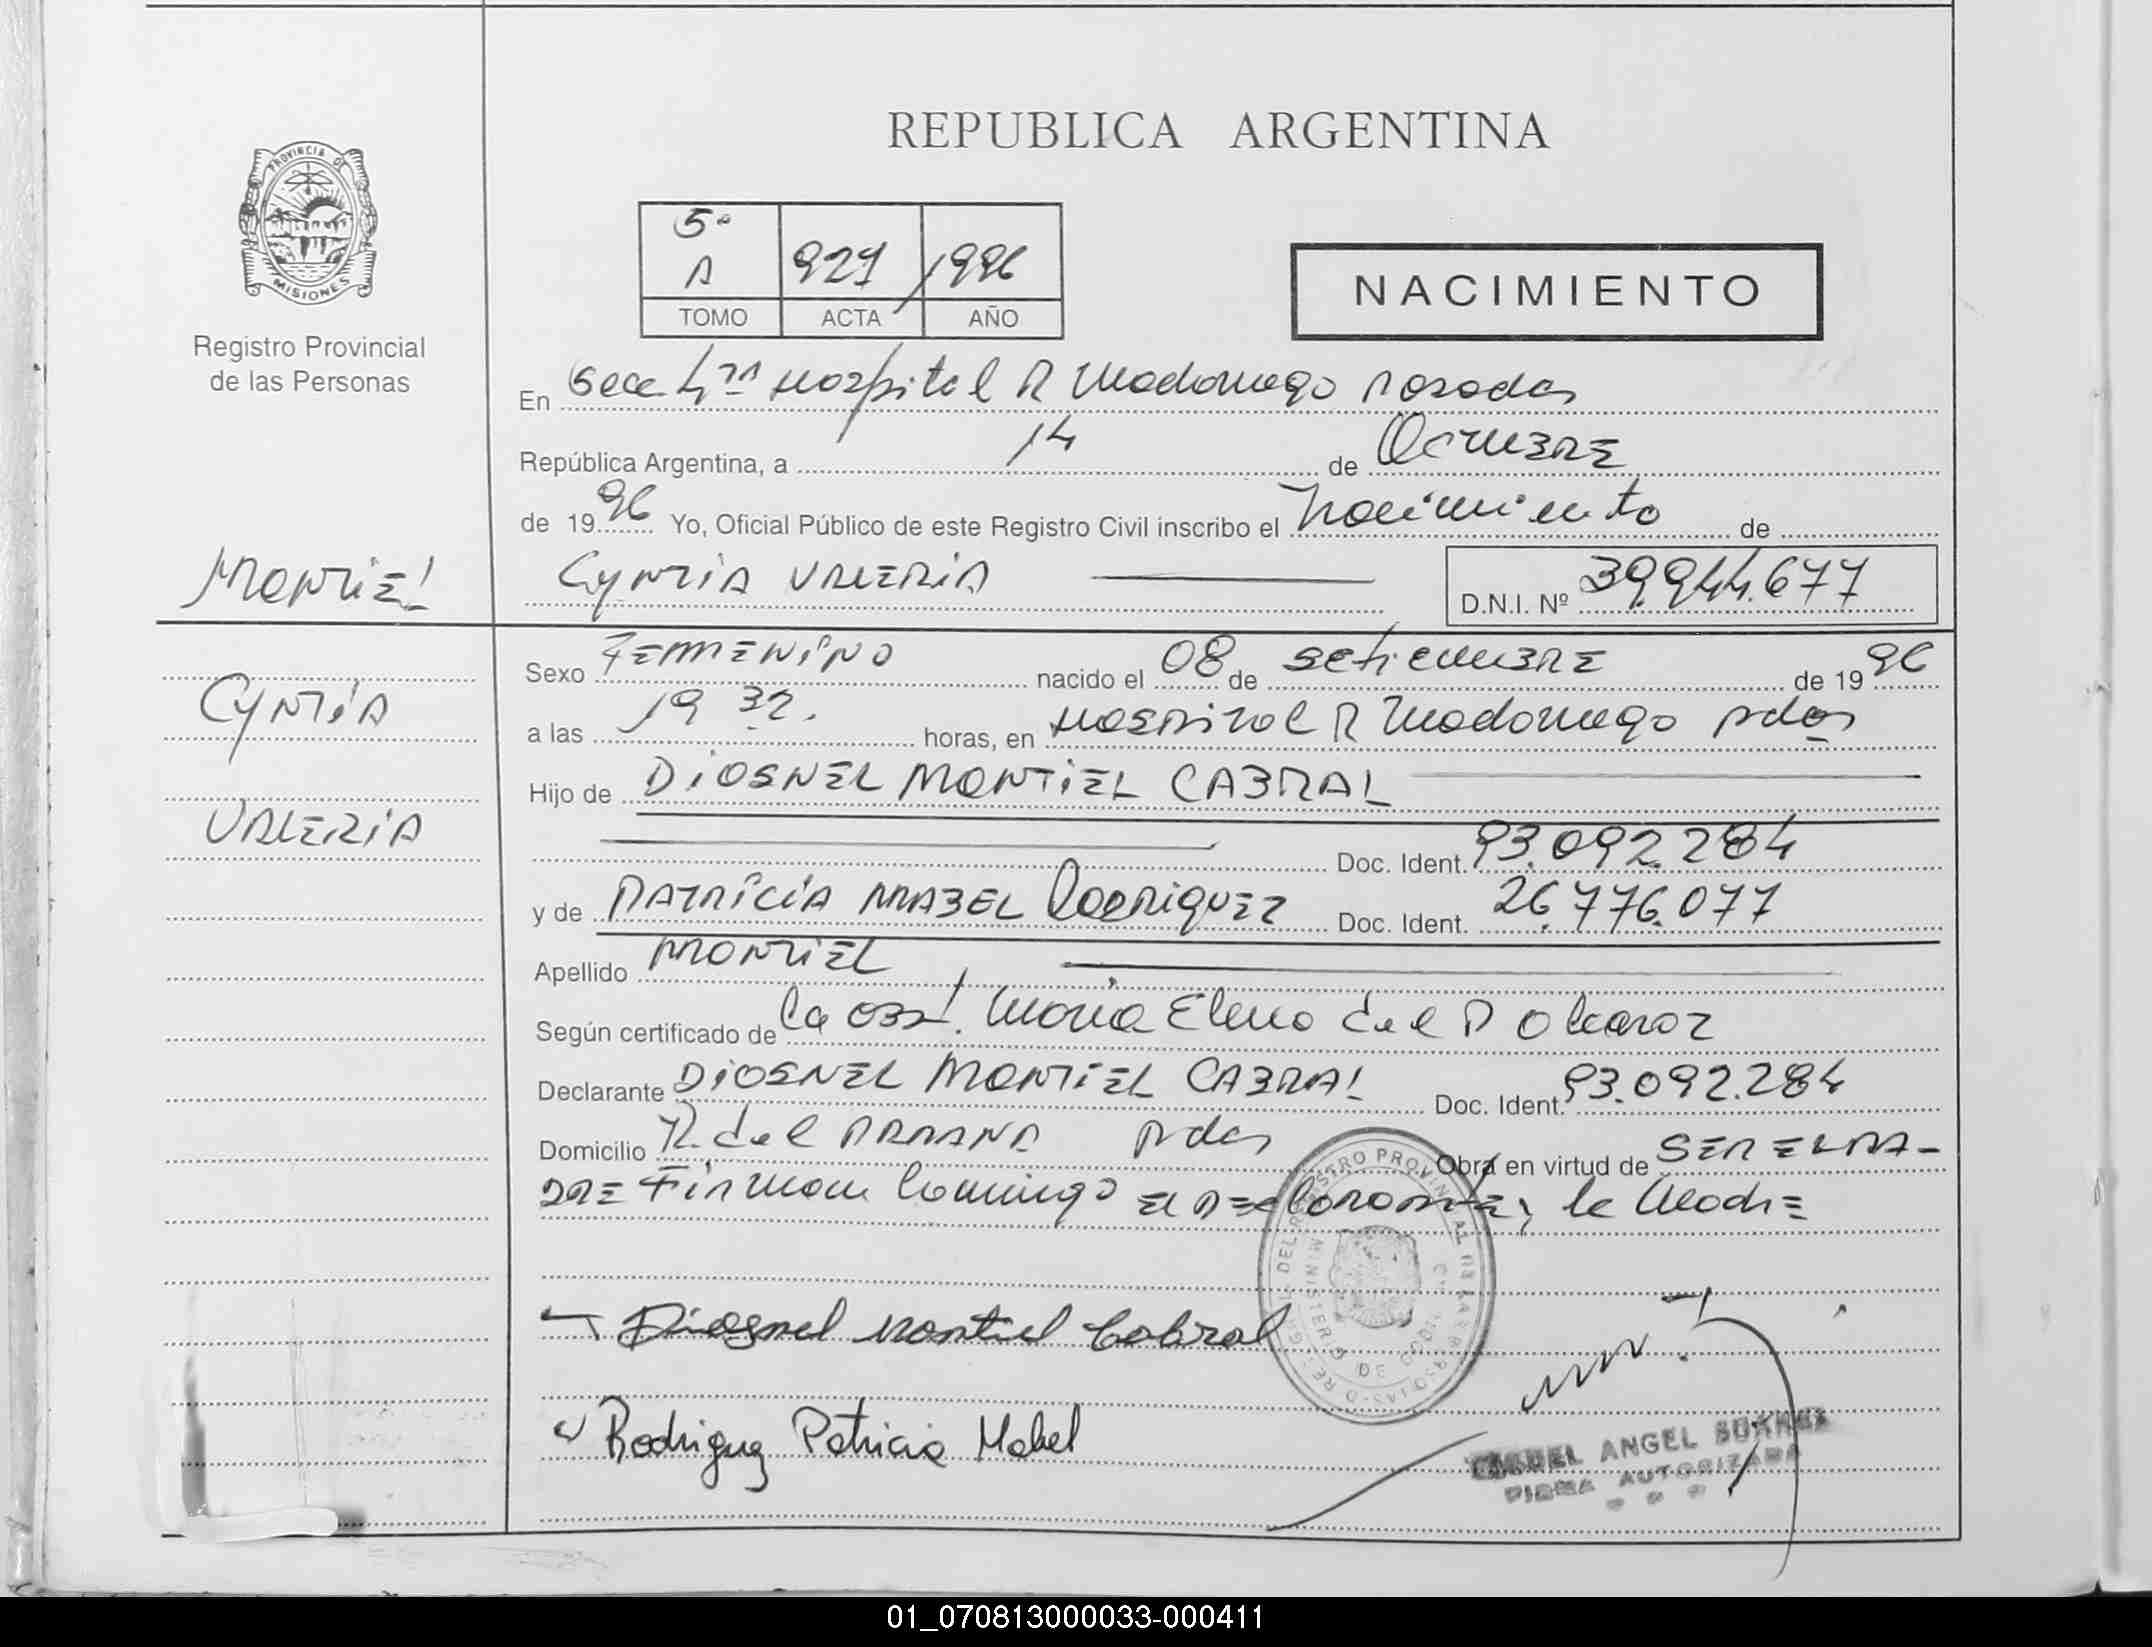 REPUBLICA ARGENTINA
PROVINCIA DE
MISIONES
Registro Provincial
de las Personas
5º
A 921 1996
TOMO ACTA AÑO
NACIMIENTO
En Secc 4ta Hospital R Madariaga Posadas
República Argentina, a 14 de Octubre
de 1996 Yo, Oficial Público de este Registro Civil inscribo el Nacimiento de
Cyntia Valeria D.N.I. Nº 39.944.677
Montiel
Cyntia
Valeria
Sexo Femenino nacido el 08 de Setiembre de 1996
a las 19 32. horas, en Hospital R Madariaga Pdas
Hijo de Diosnel Montiel Cabral
Doc. Ident. 93.092.284
y de Patricia Mabel Rodriguez Doc. Ident. 26.776.077
Apellido Montiel
Según certificado de la Obst. Maria Elena del P
Declarante Diosnel Montiel Cabral Doc. Ident. 93.092.284
Domicilio del Parana Pdas Obra en virtud de ser el pa-
dre Firman conmigo el declarante y la madre
Diosnel Montiel Cabral
Rodriguez Patricia Mabel
ANGEL SUAREZ
FIRMA AUTORIZADA
01_070813000033-000411